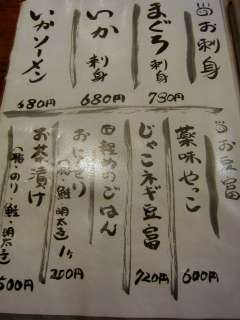 お刺身
まぐろ 刺身 780円
いか 刺身 680円
いかソーメン 680円
お豆富
薬味やっこ 600円
じゃこネギ豆富 720円
軽めのごはん
おにぎり
(梅/鮭/明太子) 1ケ 200円
お茶漬け
(梅/のり/鮭/明太子) 500円